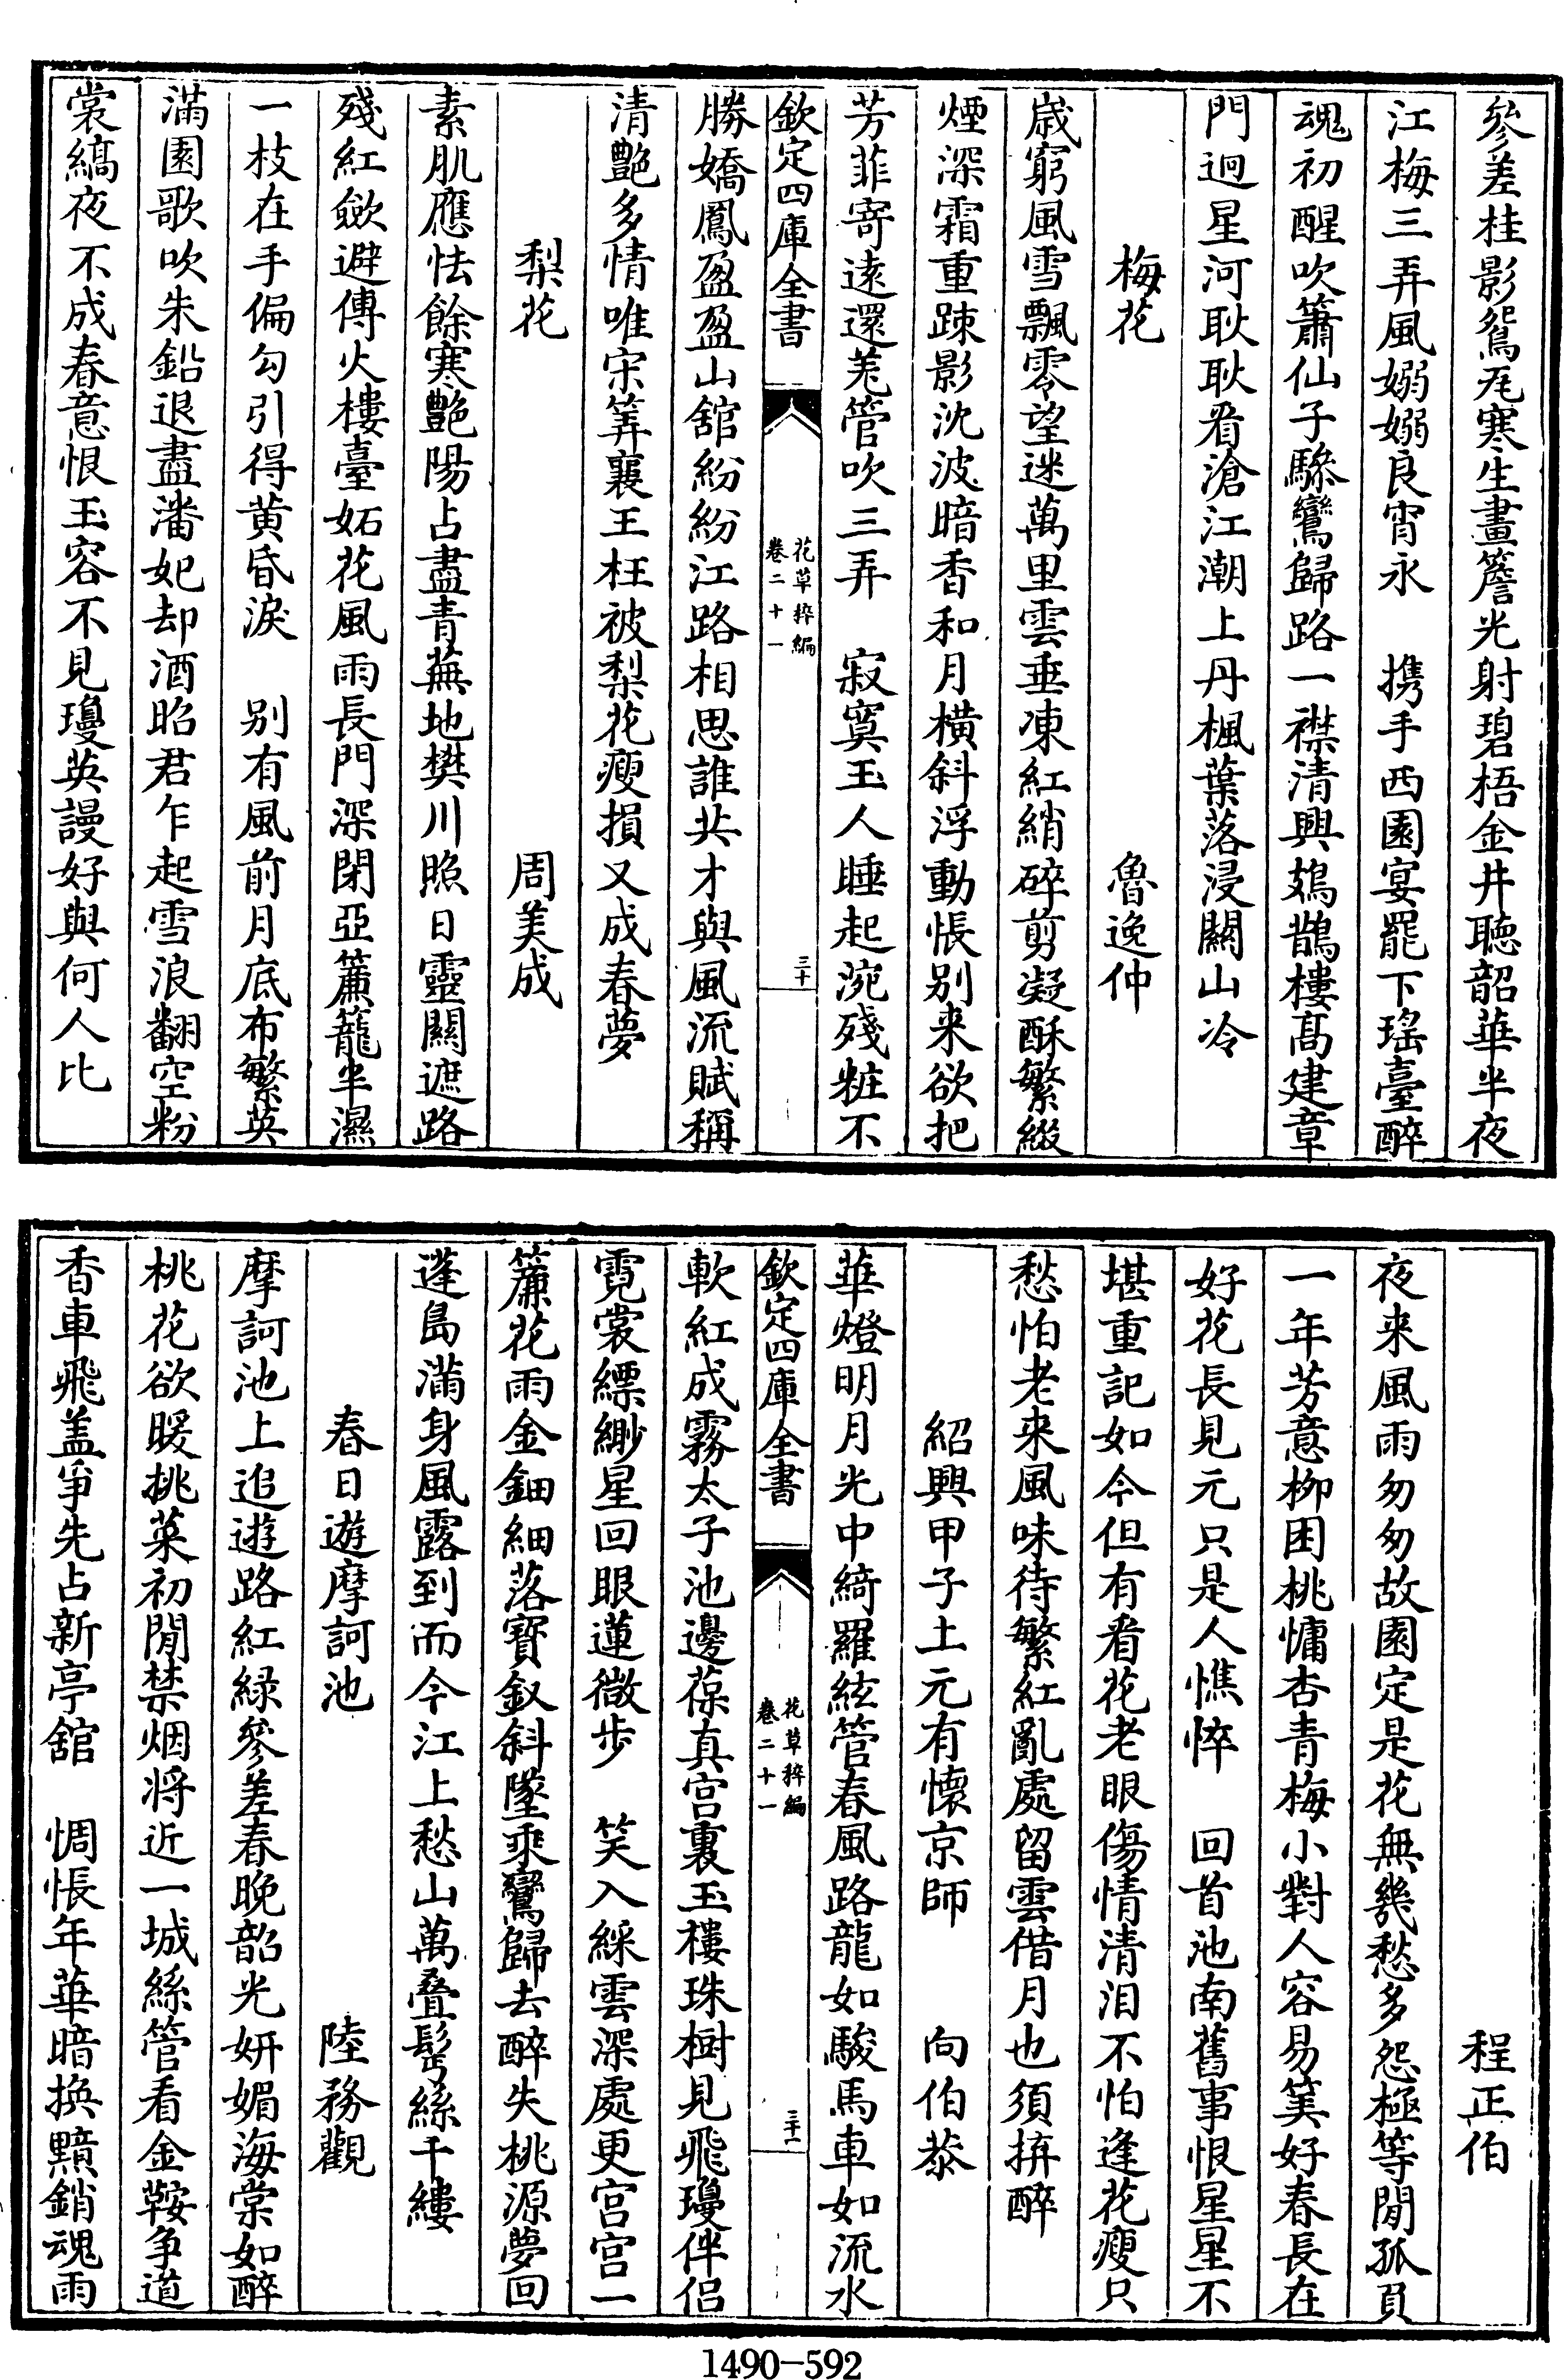 參差桂影鴛瓦寒生畫簷光射碧梧金井聽韶華半夜
江梅三弄風嫋嫋良宵永　携手西園宴罷下瑤臺醉
魂初醒吹簫仙子驂鸞歸路一襟清興鳷鵲樓髙建章
門迥星河耿耿看滄江潮上丹楓葉落浸關山冷
梅花　魯逸仲
歲窮風雪飄零望迷萬里雲垂凍紅綃碎剪凝酥繁綴
煙深霜重疎影沈波暗香和月橫斜浮動悵别来欲把
芳菲寄遠還羌管吹三弄　寂寞玉人睡起涴殘粧不
欽定四庫全書　花草稡編卷二十一　三十
勝嬌鳳盈盈山舘紛紛江路相思誰共才與風流賦稱
清艷多情唯宋筭襄王枉被梨花瘦損又成春夢
梨花　周美成
素肌應怯餘寒艷陽占盡青蕪地樊川照日靈關遮路
殘紅斂避傳火樓臺妬花風雨長門深閉亞簾籠半濕
一枝在手偏勾引得黄昏淚　别有風前月底布繁英
滿園歌吹朱鉛退盡潘妃却酒昭君乍起雪浪翻空粉
裳縞夜不成春意恨玉容不見瓊英謾好與何人比
程正伯
夜来風雨匆匆故園定是花無幾愁多怨極等閒孤負
一年芳意柳困桃慵杏青梅小對人容易筭好春長在
好花長見元只是人憔悴　回首池南舊事恨星星不
堪重記如今但有看花老眼傷情清泪不怕逢花瘦只
愁怕老来風味待繁紅亂處留雲借月也須拚醉
紹興甲子土元有懷京師　向伯恭
華燈明月光中綺羅絃管春風路龍如駿馬車如流水
欽定四庫全書　花草稡編卷二十一　三十一
軟紅成霧太子池邊葆真宫裏玉樓珠樹見飛瓊伴侣
霓裳縹緲星回眼蓮微步　笑入綵雲深處更宫宫一
簾花雨金鈿細落寶釵斜墜乘鸞歸去醉失桃源夢回
蓬島滿身風露到而今江上愁山萬叠鬂絲千縷
春日遊摩訶池　陸務觀
摩訶池上追遊路紅緑參差春晚韶光妍媚海棠如醉
桃花欲暖挑菜初閒禁烟将近一城絲管看金鞍争道
香車飛盖爭先占新亭舘　惆悵年華暗換黯銷魂雨
1490—592